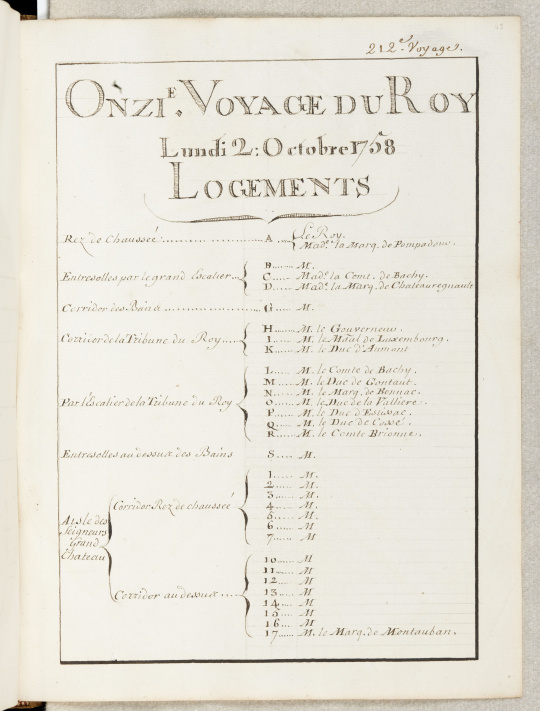 212.e Voyage.
ONZI.E VOYAGE DU ROY
Lundi 2: Octobre 1758
LOGEMENTS
Rez de Chaussée ........ A ... Le Roy.
Mad.e la Marq. de Pompadour.
B ...... M.
Entresolles par le grand Escalier ... C ...... Mad.e la Comt. de Bachy.
D ...... Mad.e la Marq. de Chateauregnault
Corridor des Bains ........ G ..... M.
H ...... M. le Gouverneur.
Corridor de la Tribune du Roy .... I ..... M. le Maul de Luxembourg.
K ..... M. le Duc d'Aumont
L ..... M. le Comte de Bachy.
M ..... M. le Duc de Gontaut.
N ..... M. le Marq. de Bennac.
Par l'Escalier de la Tribune du Roy O ..... M. le Duc de la Valliere.
P ..... M. le Duc d'Estissac.
Q ..... M. le Duc de Cossé.
R ..... M. le Comte Brionne.
Entresolles au dessus des Bains S ..... M.
1 ..... M.
2 ..... M.
3 ..... M.
Corridor Rez de chaussée 4 ..... M.
5 ..... M.
6 ..... M
7 ..... M
Aisle des Seigneurs Grand Chateau
10 ..... M
11 ..... M
12 ..... M
13 ..... M
Corridor au dessus .... 14 .... M
15 .... M
16 ... M
17 ..... M. le Marq. de Montauban.